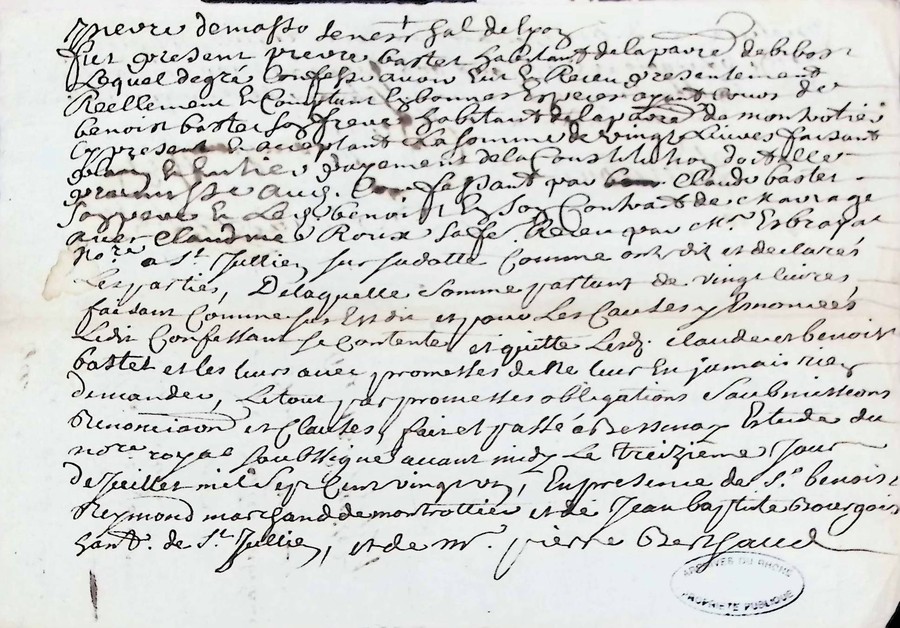 pierre demasso senes.t hal de lyon
fut present pierre bastet habitant de la parr.e de bibost
Lequel de gré Confesse avoir eu et Receu presentement
Reellement et Comptant en bonnes especes ayant Cours de
benoist bastet son frere habitant de la parr.e de montrotier
cy present et acceptant La somme de vingt Livres faisant
et Entier payement de la Constitution dotalle
promise aud. Confessant par Claude bastet
son pere et Led. benoist En son Contract de Mariage
avec Claudine Roux sa fe. Receu par M.re
No.re a S.t Jullien sur sa dotte Comme ont dit et declaré
Les parties, De laquelle somme partant de vingt livres
faisant Comme sus Est dit et pour Les Causes y Enoncées
Ledit Confessant se Contente et quitte Lesd. claude et benoist
bastet et les leurs avec promesses de ne leur En jamais rien
demander, Le tout par promesses obligations Soubmissions
Renonciaon.s et Clauses, fait et passé a bessenay Estude du
no.re royal soubsigné avant midy Le treizieme Jour
de Juillet mil sept Cent vingt un, En presence de S.r benoist
Reymond marchand de montrottier et de Jean baptiste Bourgois
hant. de S.t Jullien, et de m.e pierre Berthaud
ARCHIVES DU RHONE
PROPRIÉTÉ PUBLIQUE